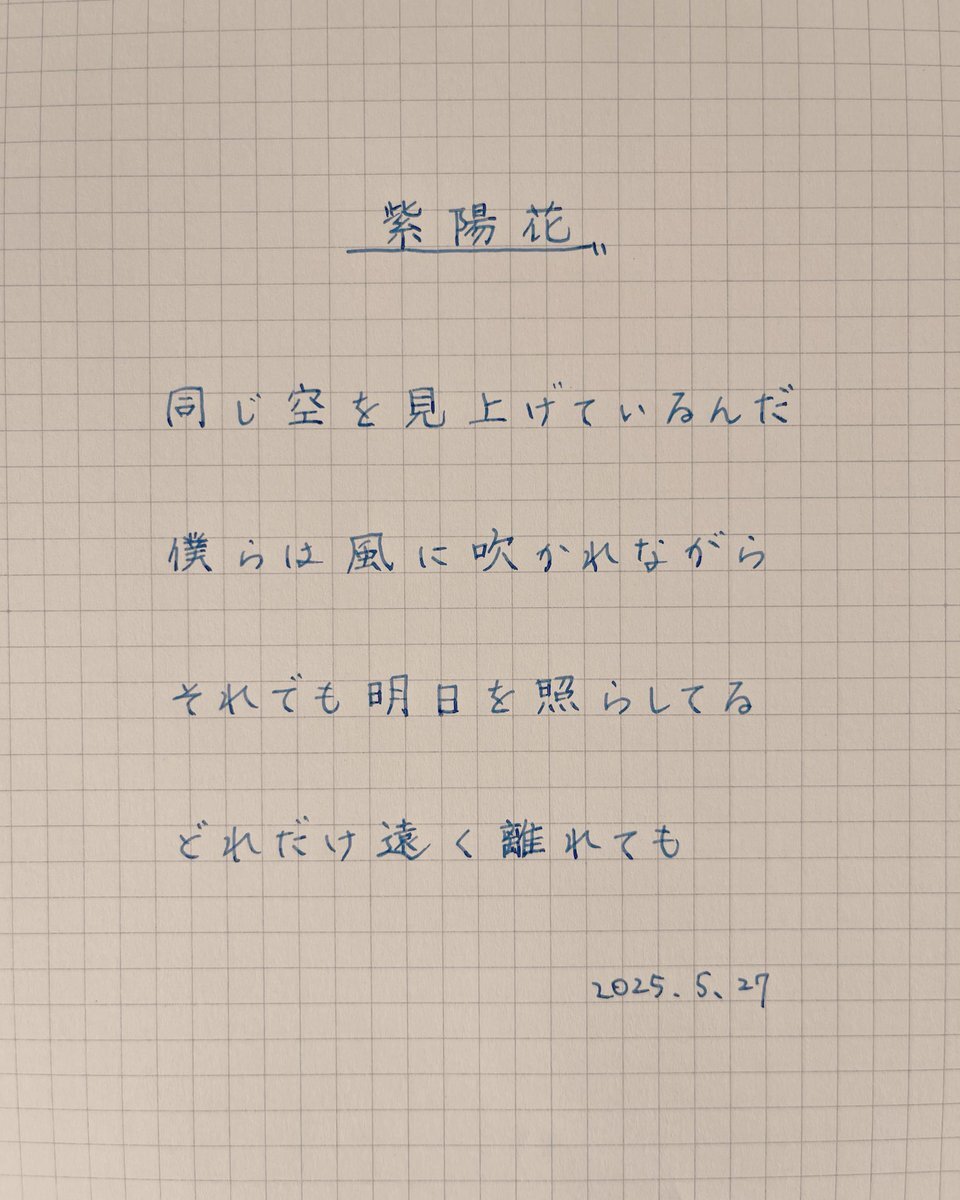 紫陽花
同じ空を見上げているんだ
僕らは風に吹かれながら
それでも明日を照らしてる
どれだけ遠く離れても
2025.5.27